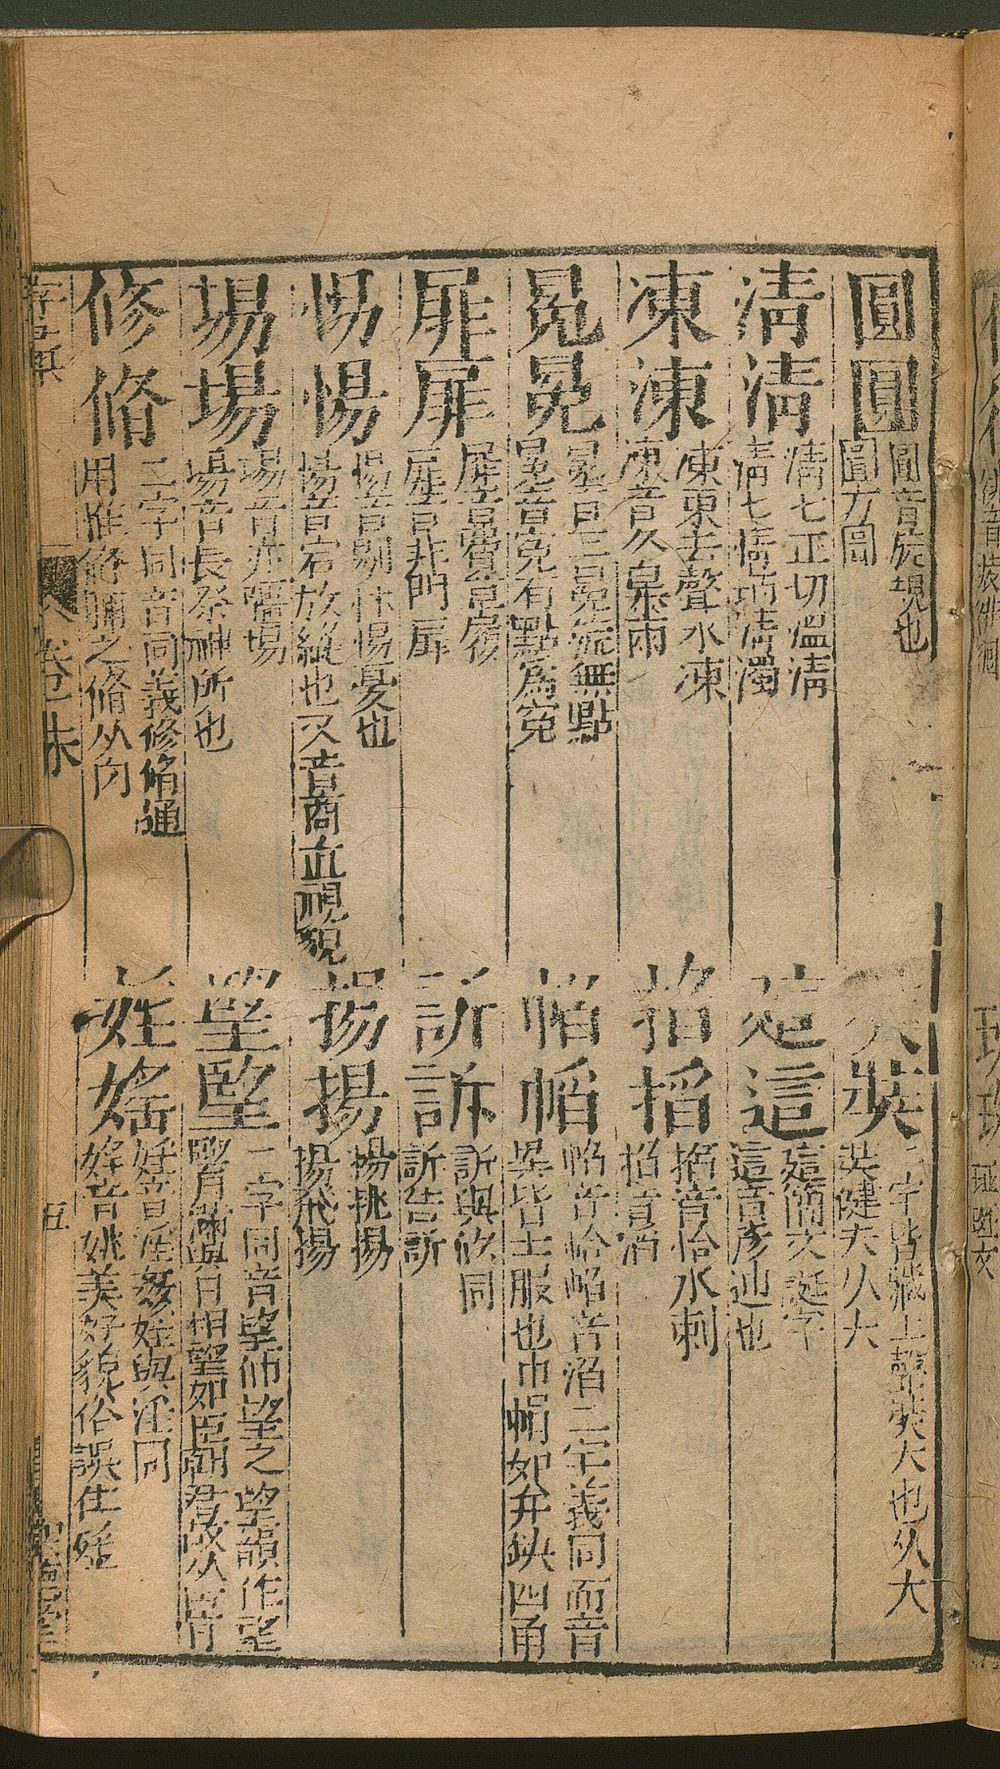 圓圓
圓音旋規也
圜方圓
凊清
凊七正切溫凊
清七情切清濁
凍涷
凍東去聲水凍
涷音久暴雨
冕
冕音三冕旒無點
冕音免有點為寃
屝扉
屝音費草屨
扉音非門扉
惕愓
惕音剔怵惕憂也
愓音宕放縱也又音商直視貌
埸場
埸音亦疆埸
場音長祭神所也
修脩
二字同音同義修脩通
用惟脩脯之脩从肉
奘
二字皆藏上聲奘大也从大
奘健犬从大
這
這簡文誕字
這音彥迎也
掐搯
掐音恰水刺
搯音滔
帢幍
帢音恰幍音滔二字義同而音
異皆士服也巾帽如弁缺四角
訢訴
訢與欣同
訴告訴
揚
揚挑揚
揚飛揚
望朢
二字同音望仰望之望韻作望
朢月滿與日相望如臣朝君故从臣肯
婬媱
婬音淫姦婬與淫同
媱音姚美好貌俗誤作婬
卷一
五